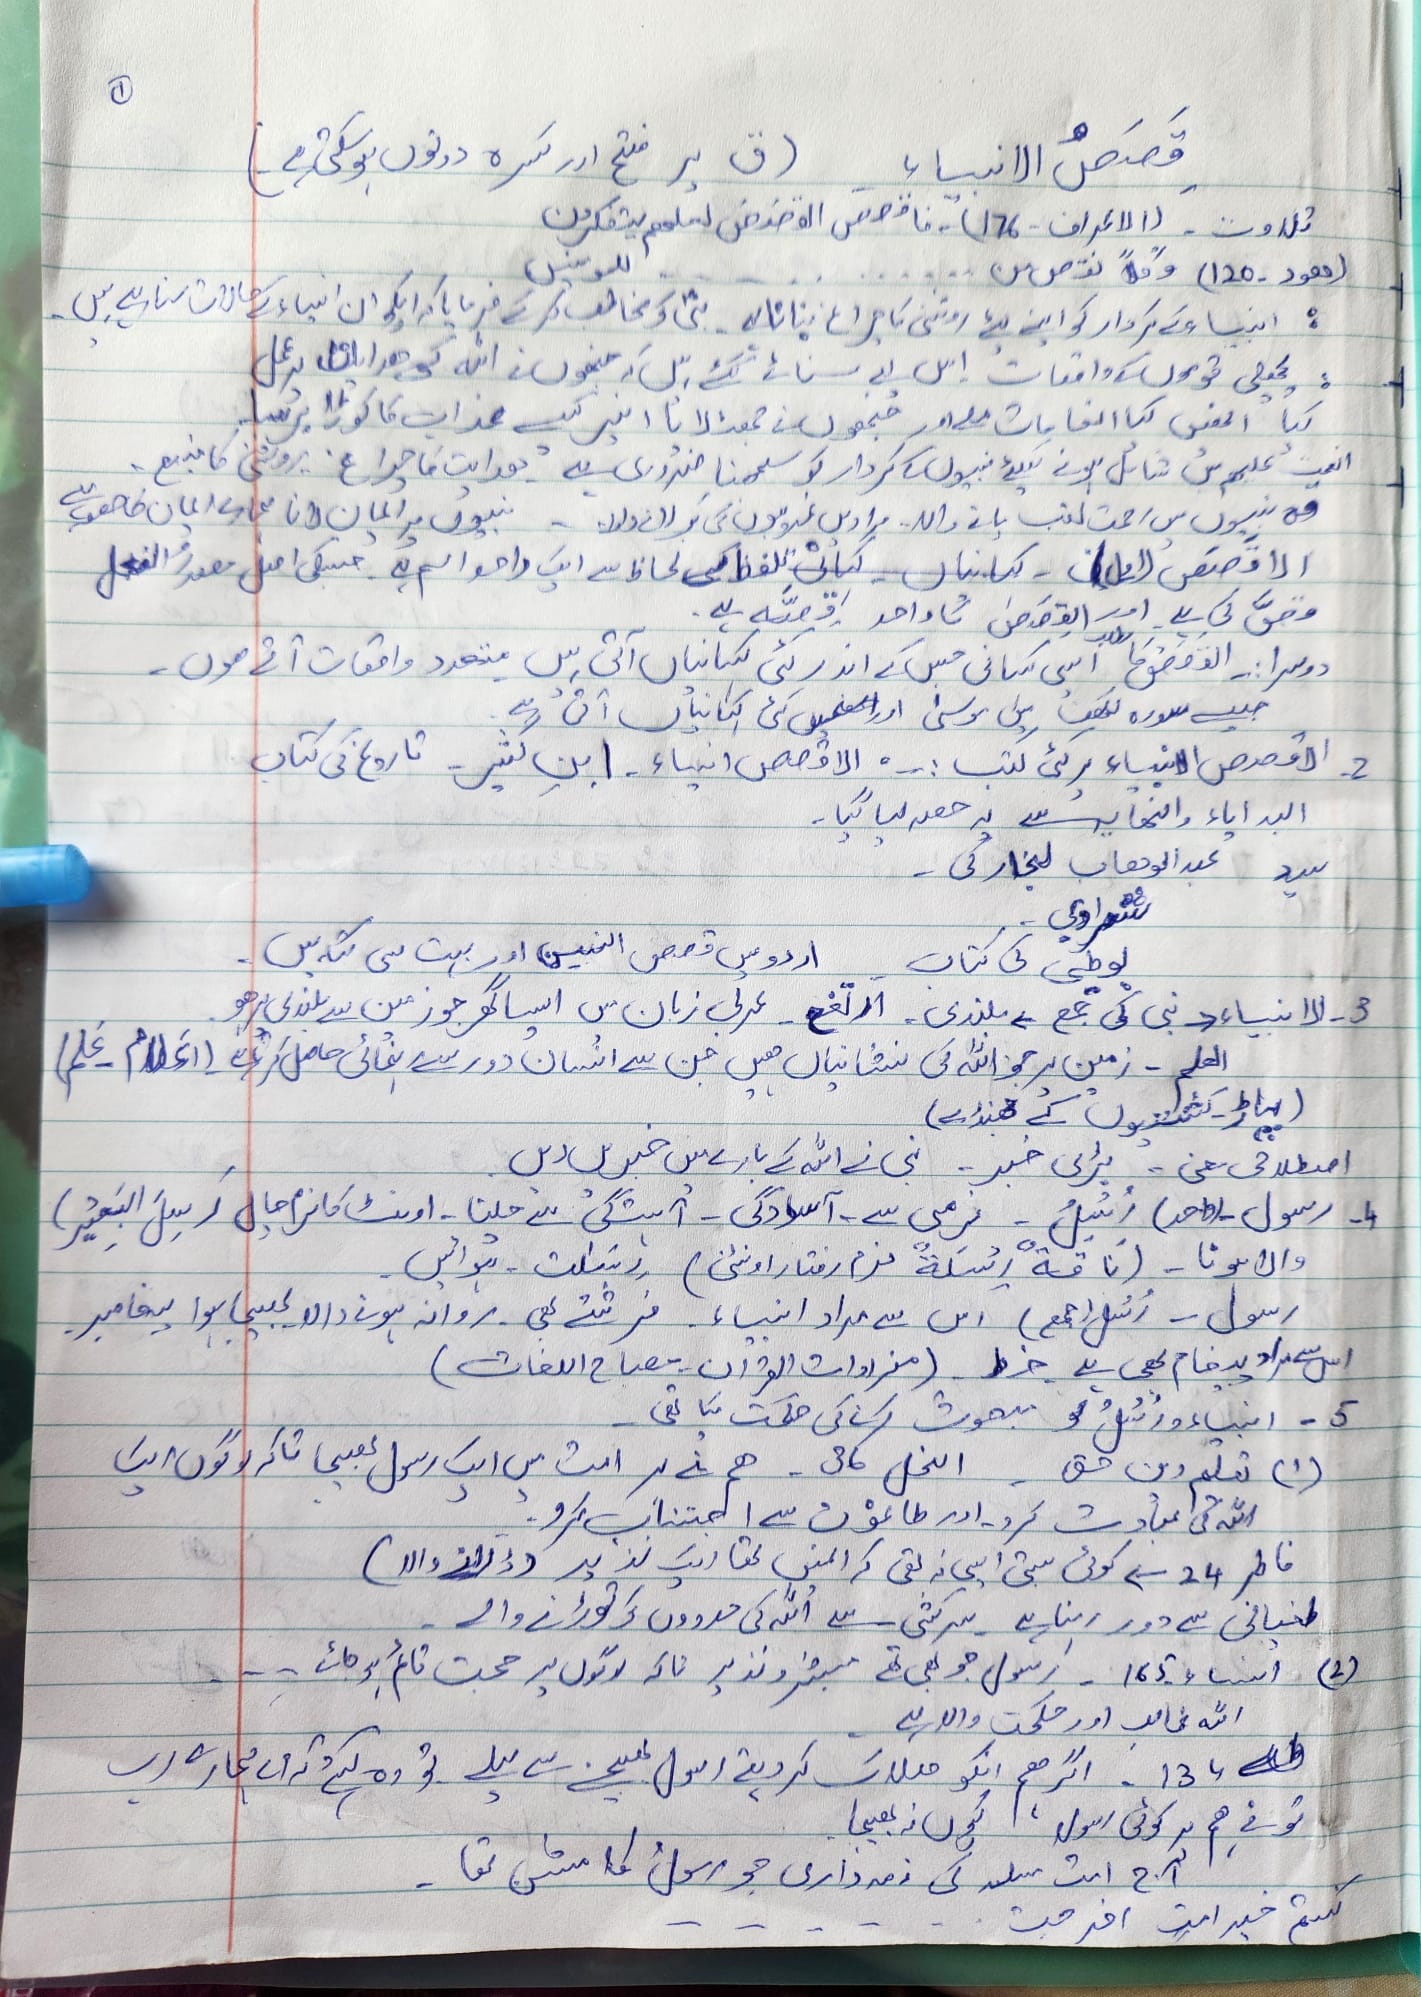 ①
قَصَصُ الانبیاء (ق پر فتح اور کسرہ دونوں ہوسکتی ہے)
تلاوت - (الاعراف - 176) - فاقصص القصص لعلھم یتفکرون
(ھود - 120) وکلاً نقص من ........ للمومنین
: انبیاء کے کردار کو اپنے لئے روشنی کا چراغ بنانا ہے - نبیؐ کو مخاطب کرکے فرمایا کہ آپکو ان انبیاء کے حالات سنا رہے ہیں -
: پچھلی قوموں کے واقعات اس لیے سنائے گئے ہیں کہ جنھوں نے اللہ کی ھدایات پر عمل
کیا انھیں کیا انعامات ملے اور جنھوں نے جھٹلایا ان پر کیسے عذاب کا کوڑا برسا
انعمت علیھم میں شامل ہونے کیلئے نبیوں کے کردار کو سمجھنا ضروری ہے - ھدایت کا چراغ - روشنی کا منبع -
نبیوں پر ایمان لانا ہمارے ایمان کا حصہ ہے
القصص - کہانیاں - کہانی تلفظ کے لحاظ سے ایک واحد اسم ہے - جسکی اصل مصدر الفعل
قصَّ کی ہے اور القِصَص کا واحد قِصَّہ ہے -
دوسرا :- القصص کا مطلب ایسی کہانی جس کے اندر کئی کہانیاں آتی ہیں متعدد واقعات آتے ھوں -
جیسے سورہ یوسف میں کئی کہانیاں آتی ہے -
2- القصص الانبیاء پر کئی کتب :- ۰ القصص انبیاء - ابن کثیر - تاریخ کی کتاب
البدایاء والنھایہ سے یہ حصہ لیا گیا -
سید عبدالوھاب نجار کی -
شعراوی -
بوطی کی کتاب - اردو میں قصص النبیین اور بہت سی کتابیں -
3- الانبیاء - نبی کی جمع - بلندی - ارتفع - عربی زبان میں ایسا گھر جو زمین سے بلندی پر ھو
العلم - زمین پر جو اللہ کی نشانیاں ھیں جن سے انسان دور سے رہنمائی حاصل کرتا ہے (اعلام - علم)
(پہاڑ - کشتیوں کے جھنڈے)
اصطلاحی معنی - بڑی خبر - نبی نے اللہ کے بارے میں خبریں دیں -
4- رسول - (واحد) رُسُلُ - نرمی سے - آسودگی - آہستگی سے چلنا - اونٹ کا نرم چال
والا ہونا - (نَاقۃٌ رِسْلَۃٌ نرم رفتار اونٹنی) رسلت - ہوائیں -
رسول - رُسُل (جمع) اس سے مراد انبیاء - فرشتے بھی - روانہ ہونے والا - بھیجا ہوا پیغامبر -
اس سے مراد پیغام بھی ہے - خط - (مفردات القرآن - مصباح اللغات)
5- انبیاء و رُسُلُ کو مبعوث کرنے کی حکمت کیا تھی -
(1) تعلیم دین حق - النحل - ھم نے ہر امت میں ایک رسول بھیجا تاکہ لوگوں ایک
اللہ کی عبادت کرو اور طاغوت سے اجتناب کرو -
فاطر 24 سے کوئی بستی ایسی نہ تھی کہ نذیر (ڈرانے والا)
طغیانی سے دور رہنا ہے - سرکشی سے اللہ کی حدوں کو توڑنے والے -
(2) النساء 165 - رسول جو بھی تھے مبشر و نذیر تاکہ لوگوں پر حجت قائم ہوجائے - -
اللہ غالب اور حکمت والا ہے
طٰہٰ 134 - اگر ھم انکو ھلاک کردیتے رسول بھیجنے سے پہلے تو وہ کہتے کہ اے ہمارے رب
تو نے ھم پر کوئی رسول کیوں نہ بھیجا
آج امت مسلمہ کی ذمہ داری جو رسولؐ کا مشن تھا -
کنتم خیر امۃ اخرجت - - - - -